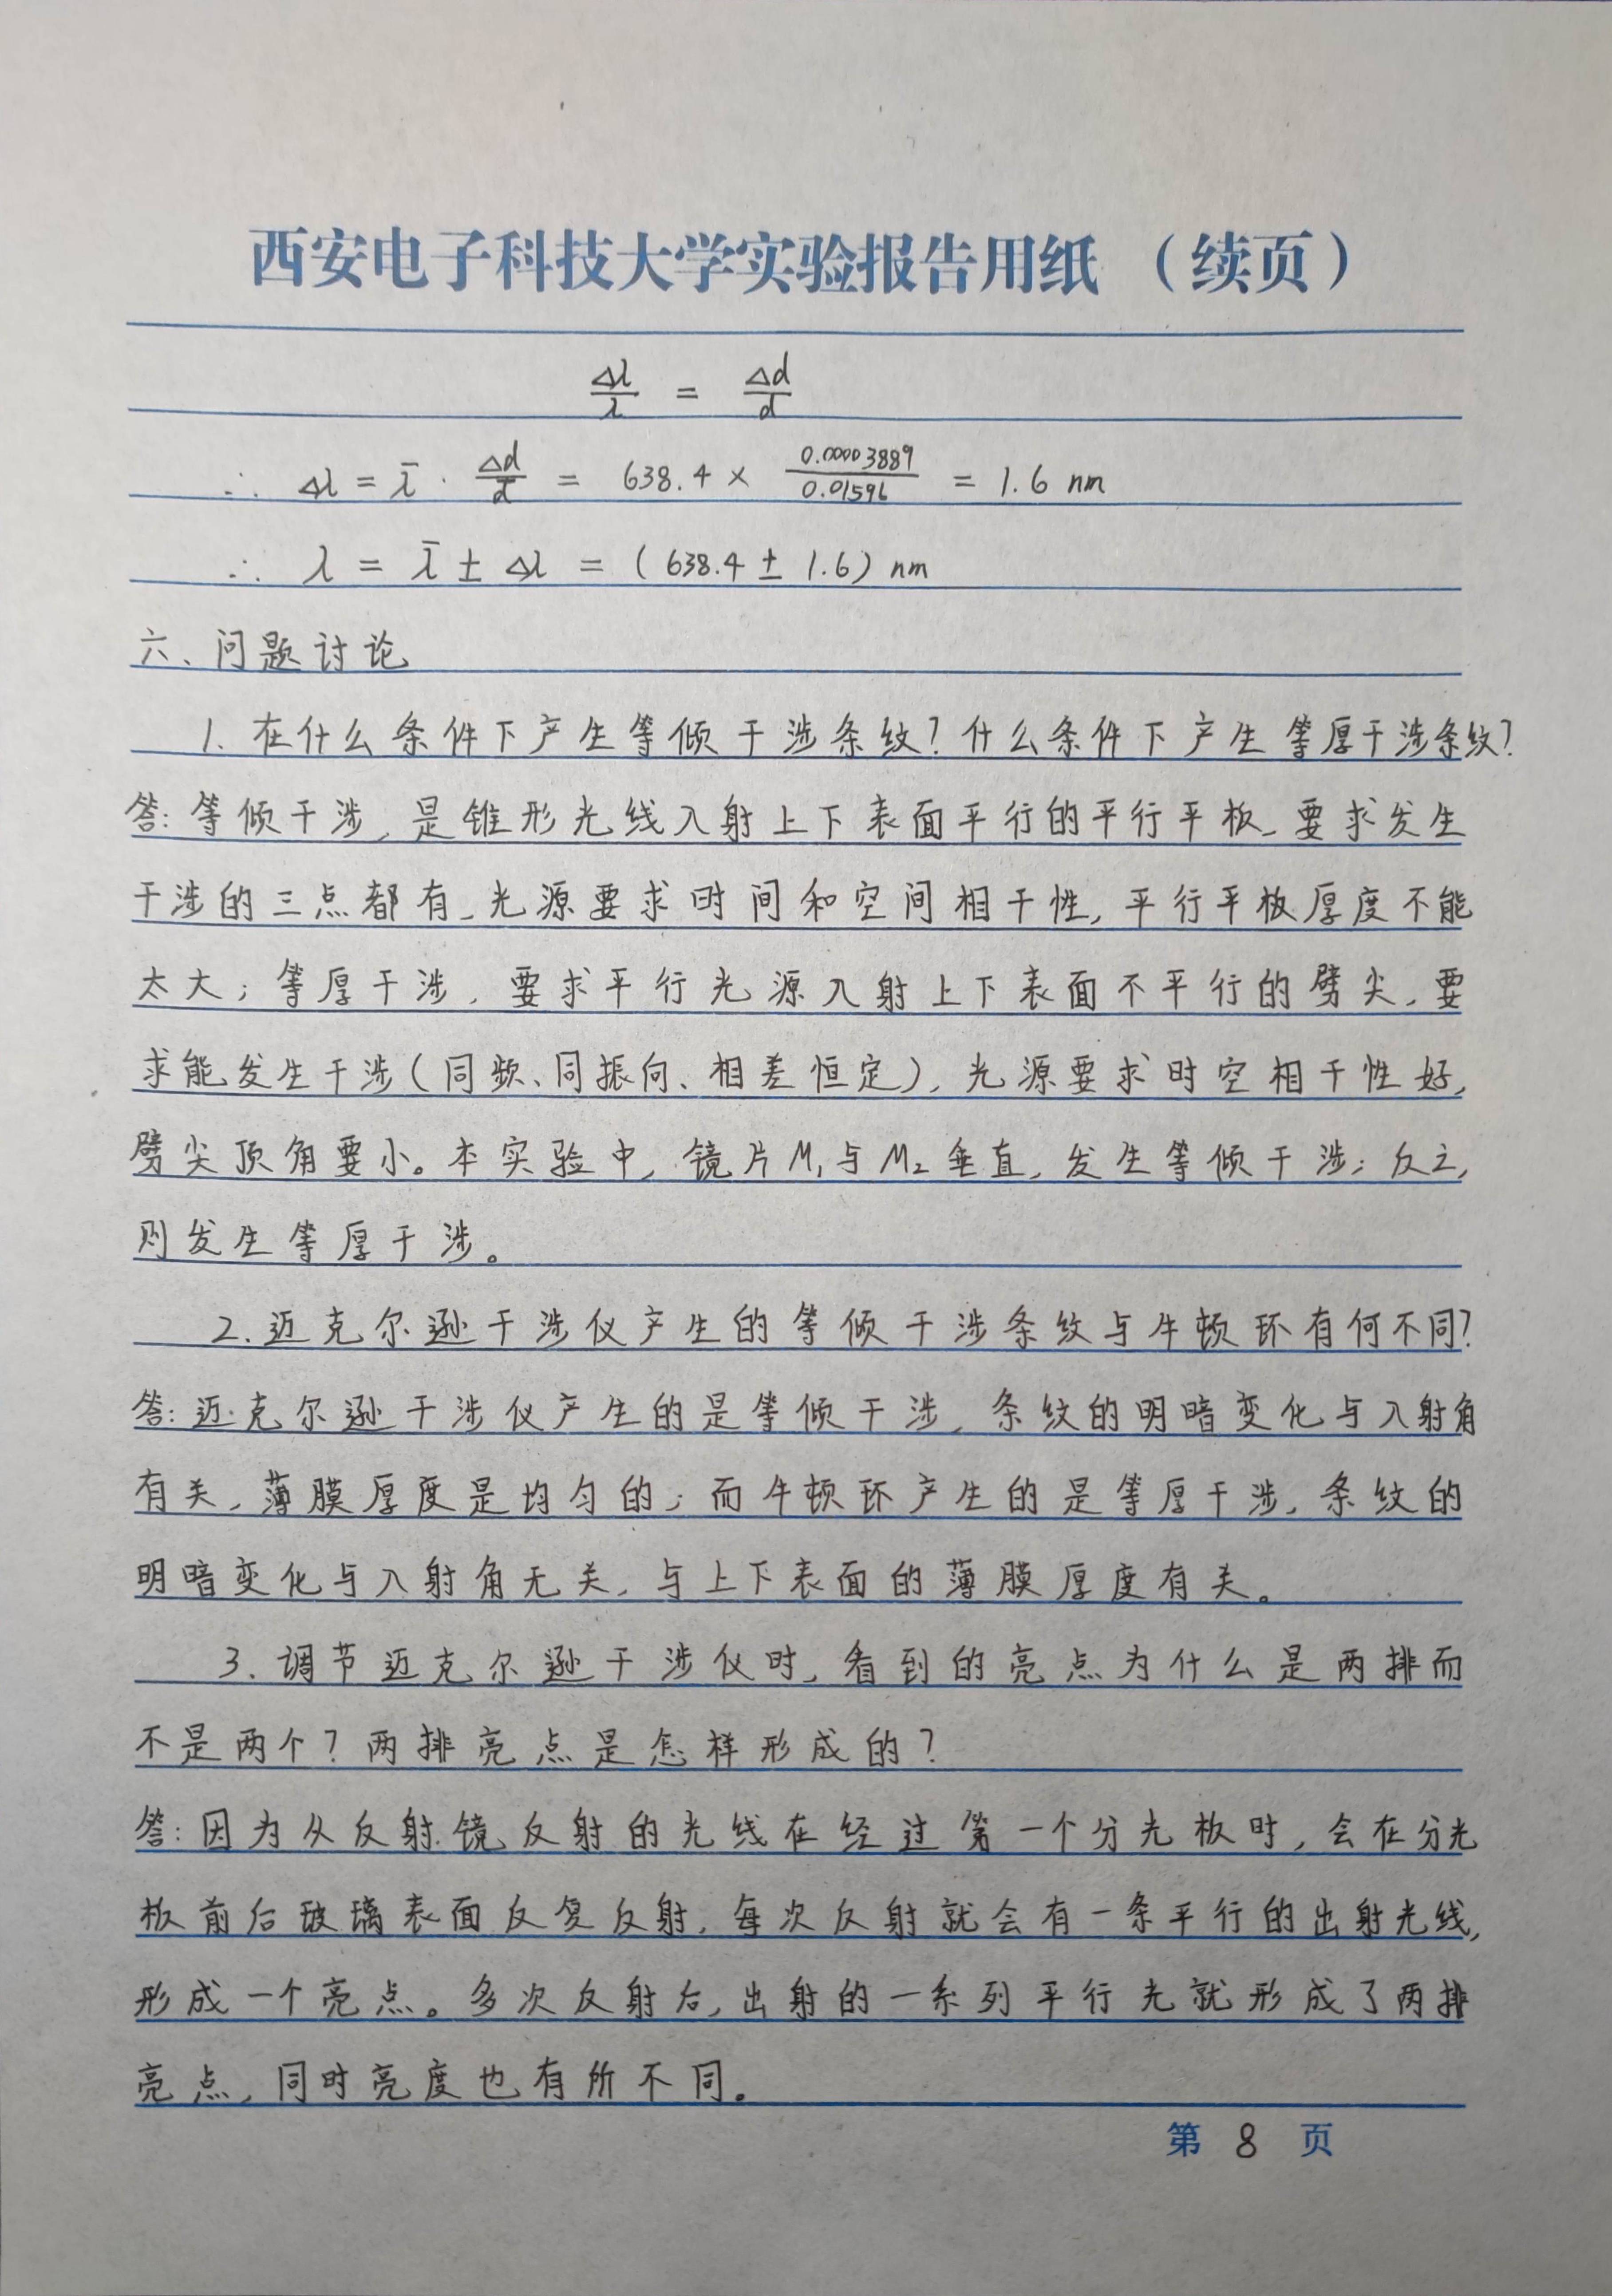 西安电子科技大学实验报告用纸 (续页)
Δλ/λ = Δd/d
∴ Δλ = λ̄ · Δd/d = 638.4 × 0.00003889/0.01596 = 1.6 nm
∴ λ = λ̄ ± Δλ = (638.4 ± 1.6) nm
六、问题讨论
1. 在什么条件下产生等倾干涉条纹?什么条件下产生等厚干涉条纹?
答:等倾干涉,是锥形光线入射上下表面平行的平行平板,要求发生
干涉的三点都有,光源要求时间和空间相干性,平行平板厚度不能
太大;等厚干涉,要求平行光源入射上下表面不平行的劈尖,要
求能发生干涉(同频、同振向、相差恒定),光源要求时空相干性好,
劈尖顶角要小。本实验中,镜片M₁与M₂垂直,发生等倾干涉;反之,
则发生等厚干涉。
2. 迈克尔逊干涉仪产生的等倾干涉条纹与牛顿环有何不同?
答:迈克尔逊干涉仪产生的是等倾干涉,条纹的明暗变化与入射角
有关,薄膜厚度是均匀的;而牛顿环产生的是等厚干涉,条纹的
明暗变化与入射角无关,与上下表面的薄膜厚度有关。
3. 调节迈克尔逊干涉仪时,看到的亮点为什么是两排而
不是两个?两排亮点是怎样形成的?
答:因为从反射镜反射的光线在经过第一个分光板时,会在分光
板前后玻璃表面反复反射,每次反射就会有一条平行的出射光线,
形成一个亮点。多次反射后,出射的一系列平行光就形成了两排
亮点,同时亮度也有所不同。
第 8 页